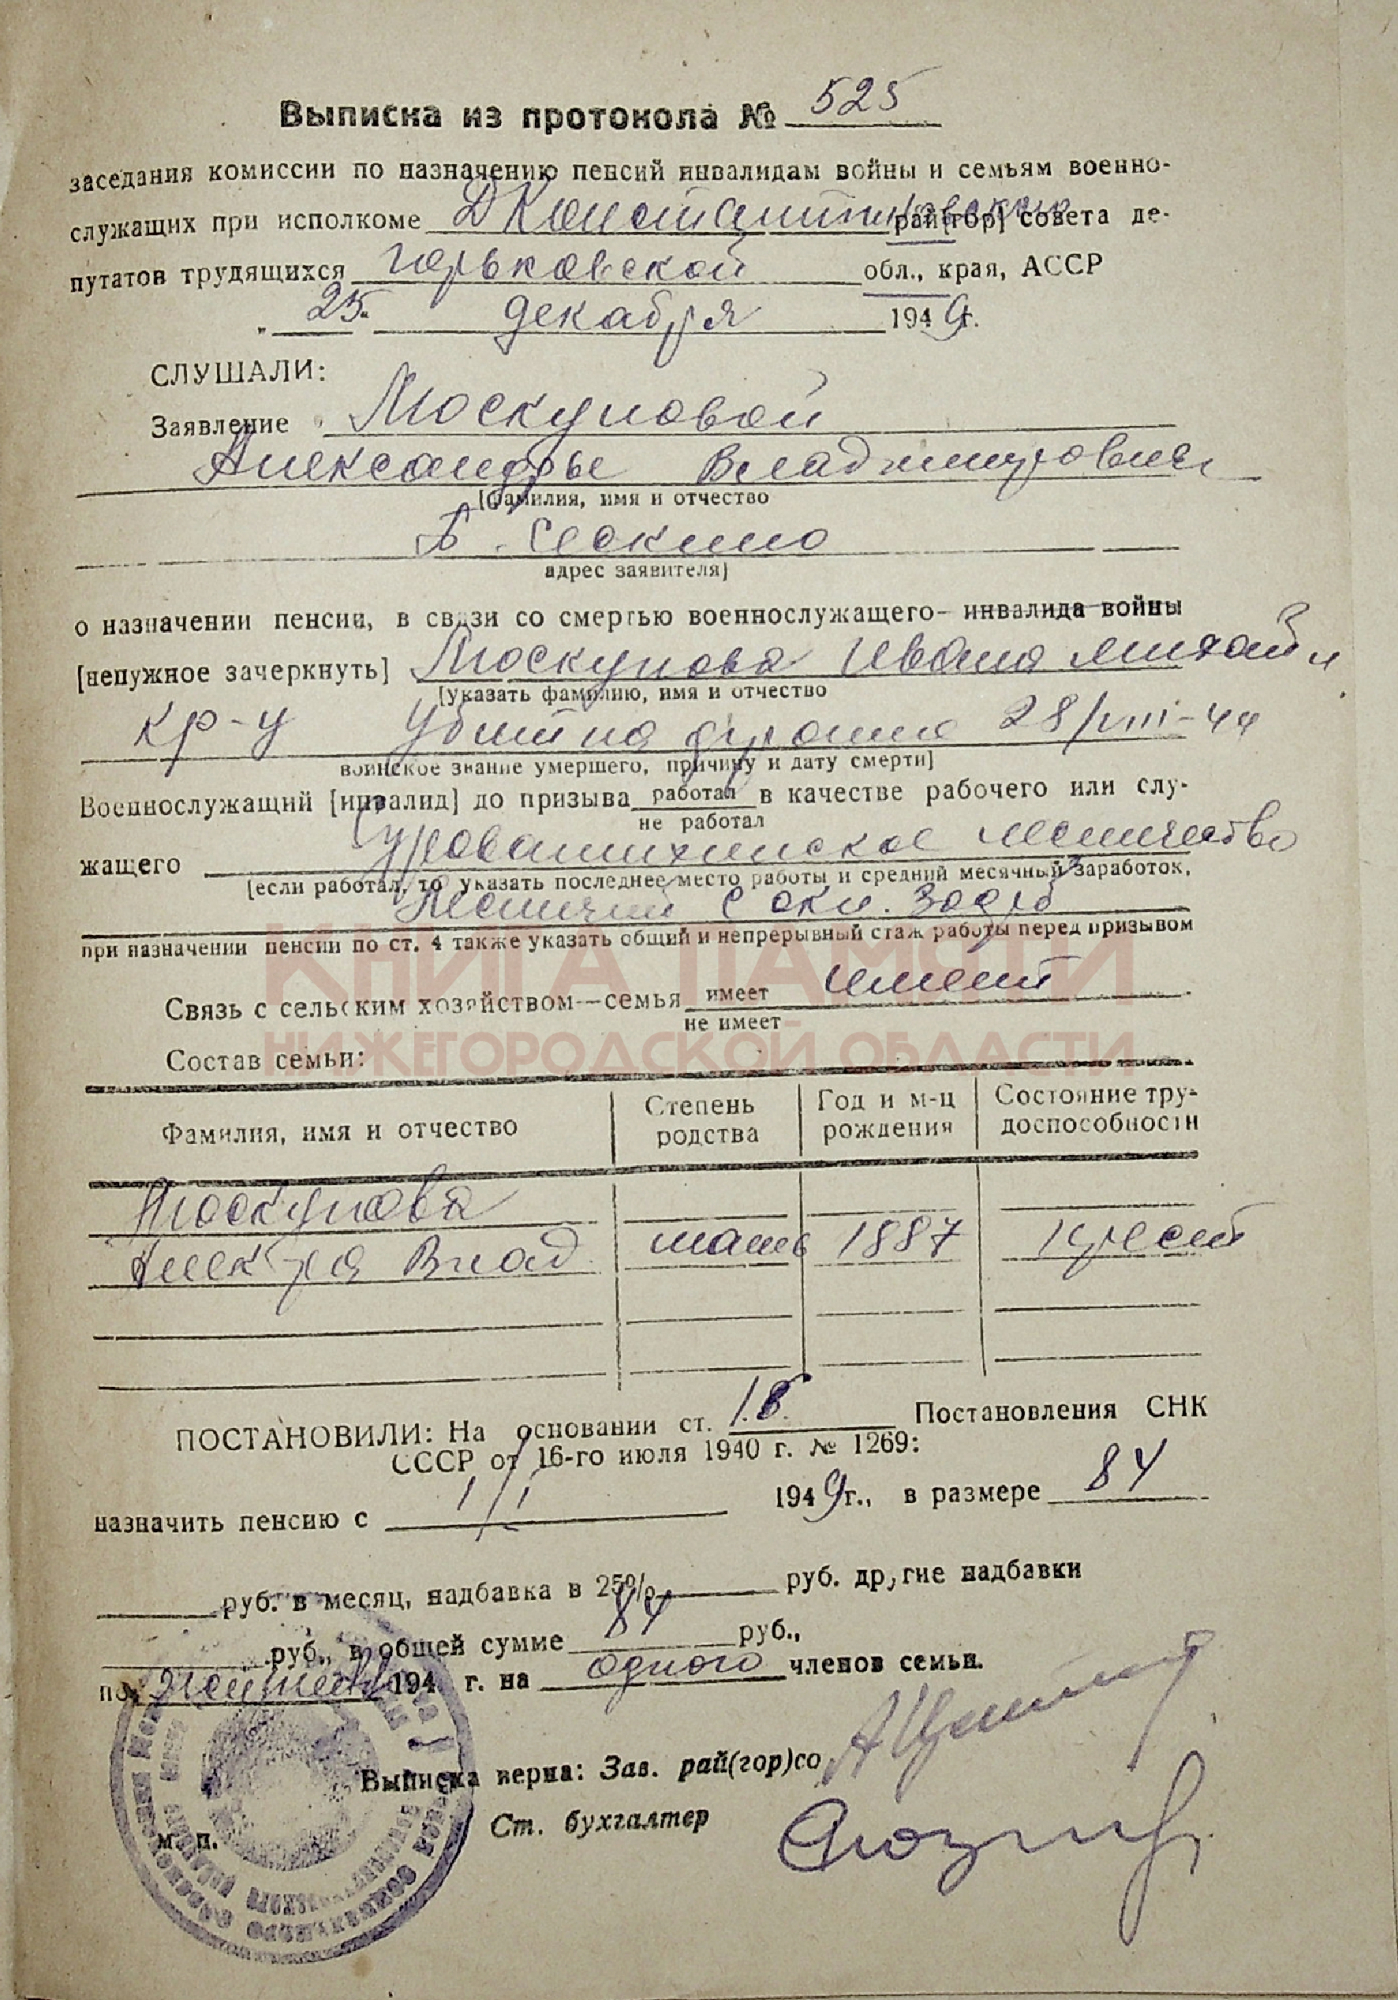 Выписка из протокола № 525
заседания комиссии по назначению пенсий инвалидам войны и семьям военно-
служащих при исполкоме Д Константиновском рай[гор] совета де-
путатов трудящихся Горьковской обл., края, АССР
„ 25 " декабря 1949 г.
СЛУШАЛИ:
Заявление Москуновой
Александры Владимировны
[фамилия, имя и отчество
Б. Сескино
адрес заявителя]
о назначении пенсии, в связи со смертью военнослужащего– инвалида войны
[ненужное зачеркнуть] Москунова Ивана Михайл
[указать фамилию, имя и отчество
кр-ц убит на фронте 28/VIII-44
воинское звание умершего, причину и дату смерти]
Военнослужащий [инвалид] до призыва работал в качестве рабочего или слу-
не работал
жащего лесничество
[если работал, то указать последнее место работы и средний месячный заработок,
Лесничий с окл. руб
при назначении пенсии по ст. 4 также указать общий и непрерывный стаж работы перед призывом
КНИГА ПАМЯТИ
Связь с сельским хозяйством—семья имеет имеет
не имеет
НИЖЕГОРОДСКОЙ ОБЛАСТИ
Состав семьи:
Фамилия, имя и отчество Степень родства Год и м-ц рождения Состояние тру-доспособности
Москунова
Алек-ра Влад мать 1887 прест
ПОСТАНОВИЛИ: На основании ст. 1.8. Постановления СНК
СССР от 16-го июля 1940 г. № 1269:
назначить пенсию с 1/I 1949 г., в размере 84
руб. в месяц, надбавка в 25% руб. другие надбавки
руб., в общей сумме 84 руб.,
по 194 г. на одного членов семьи.
Выписка верна: Зав. рай(гор)со
м. п. Ст. бухгалтер